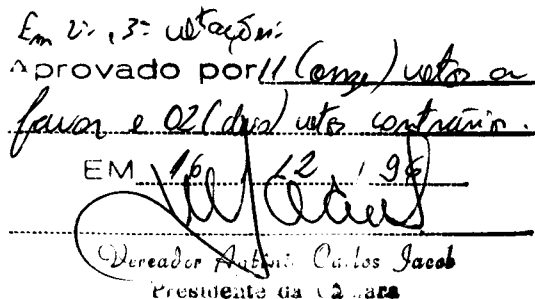 Em 2ª, 3ª votações:
Aprovado por 11 (onze) votos a
favor e 02 (dois) votos contrários.
EM 16 / 12 / 96
Vereador Antônio Carlos Jacob
Presidente da Câmara